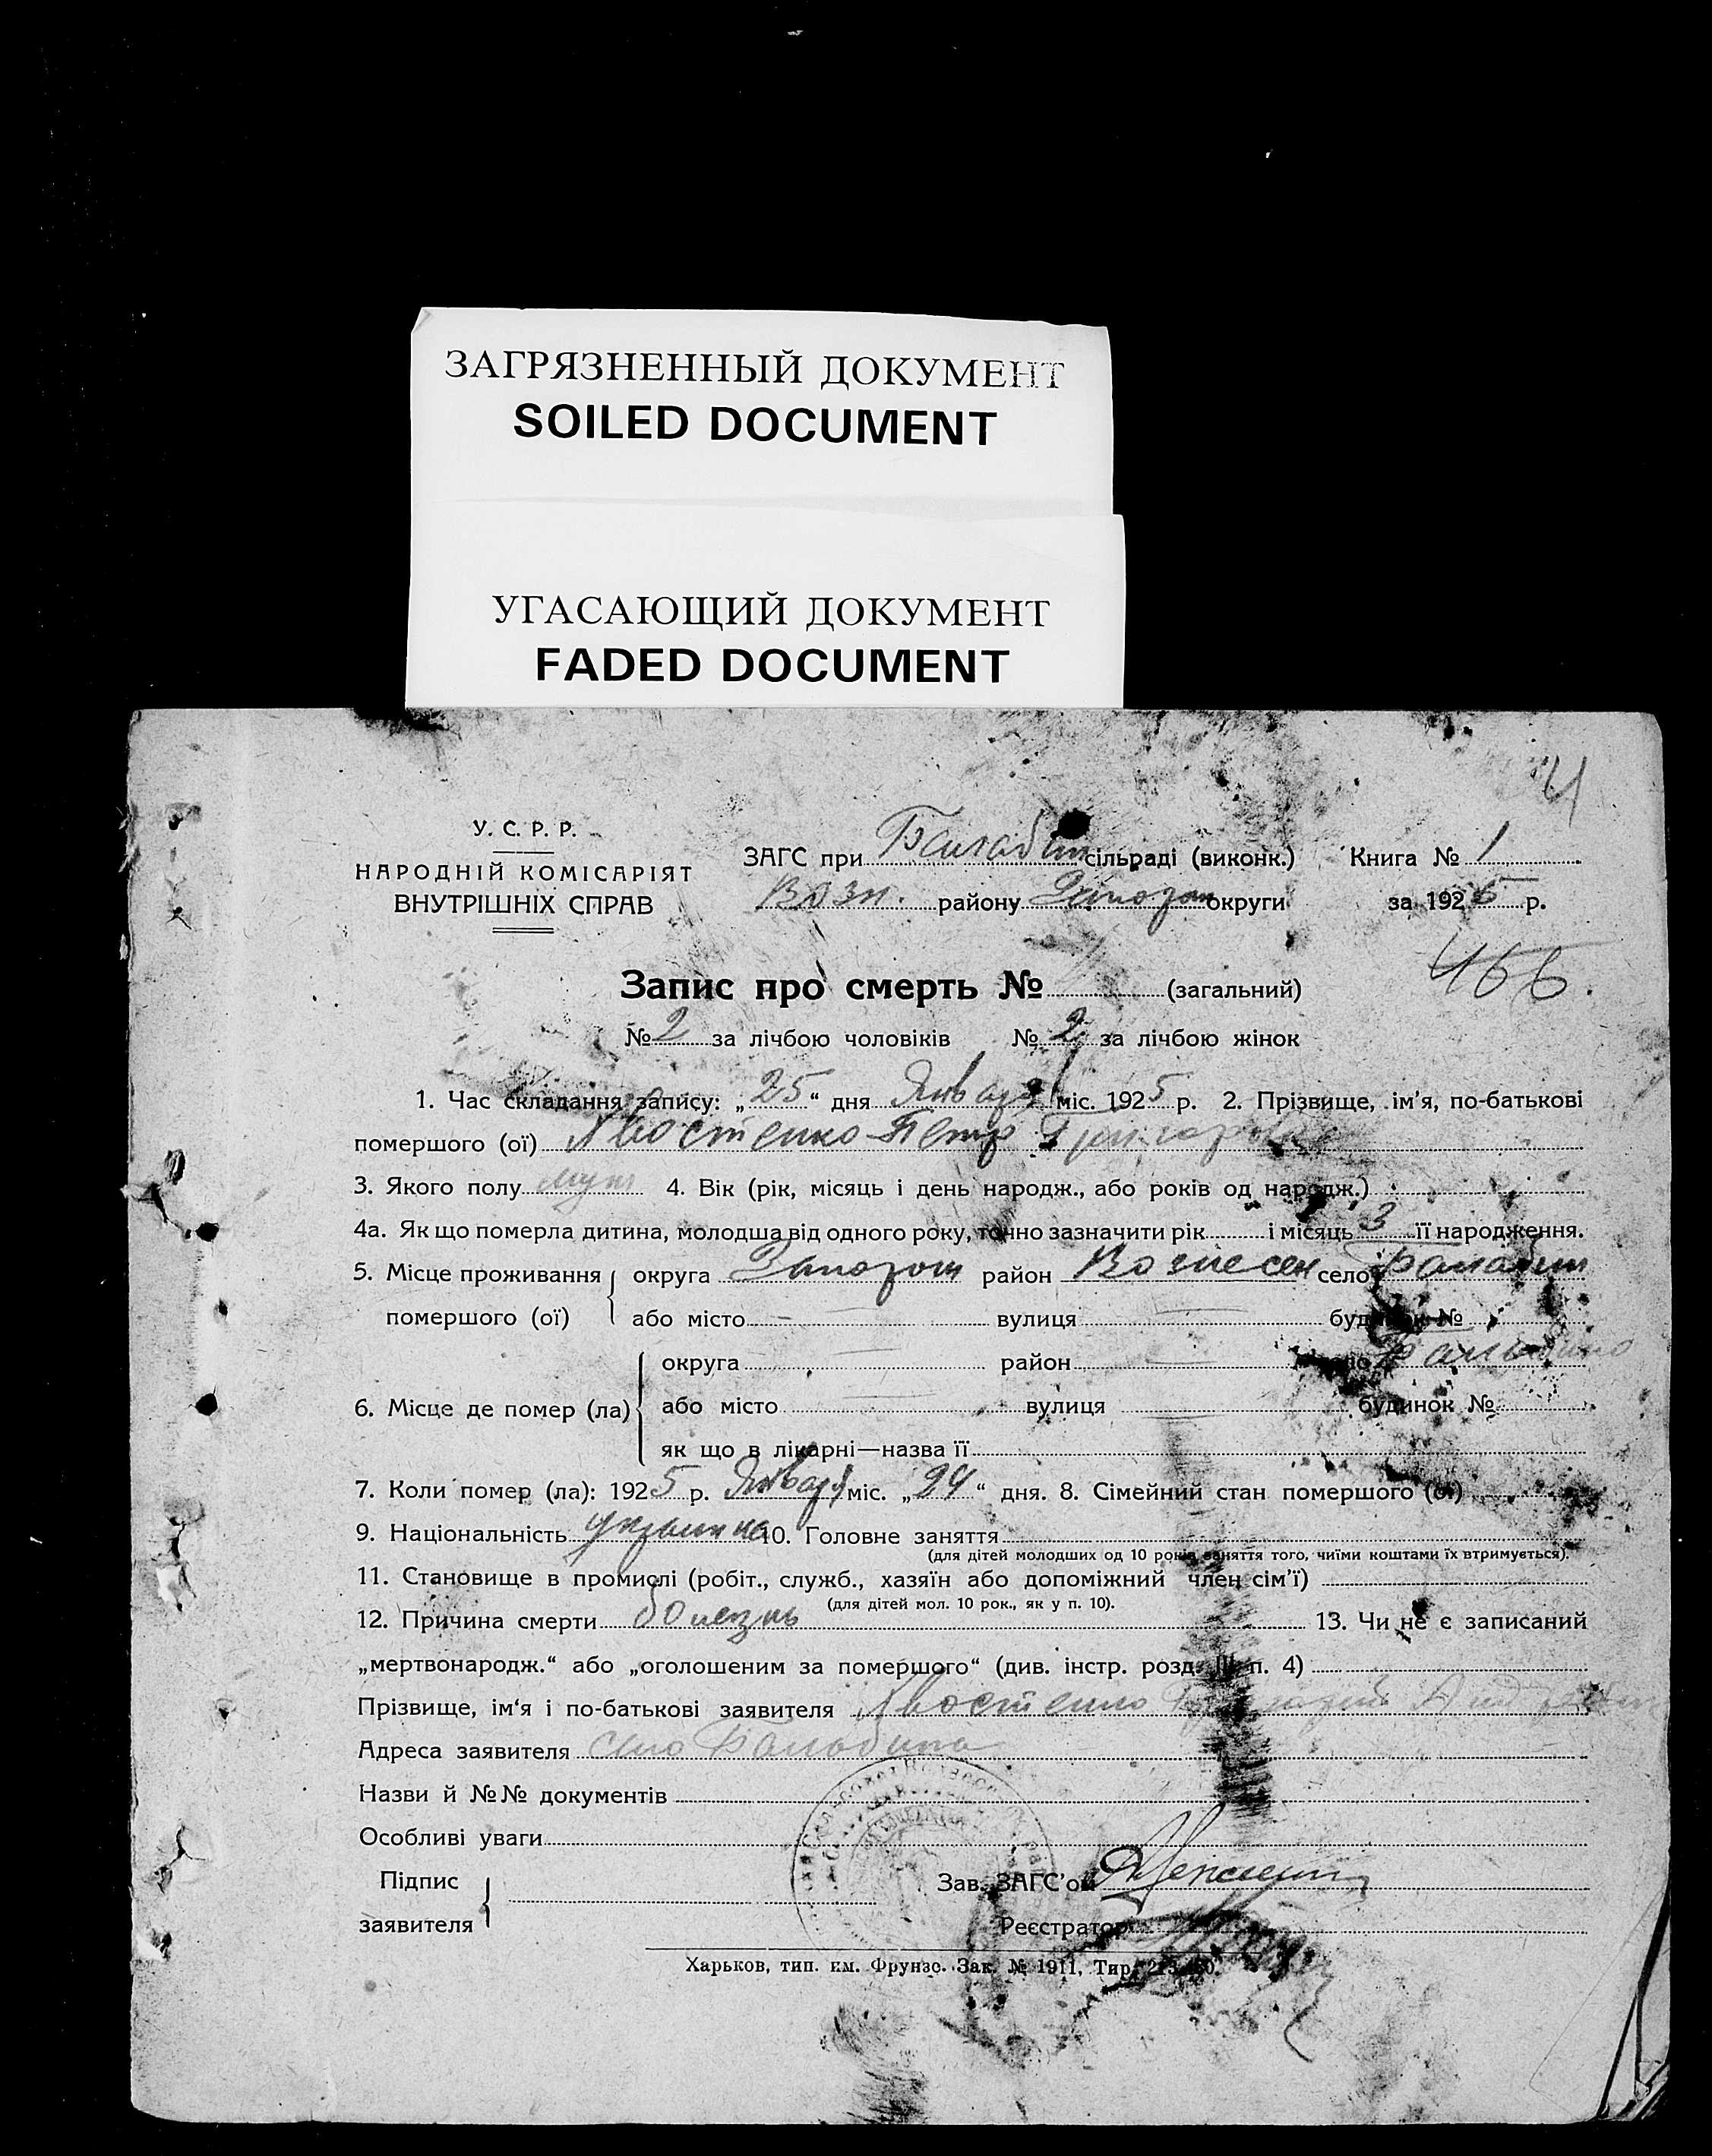 ЗАГРЯЗНЕННЫЙ ДОКУМЕНТ
SOILED DOCUMENT
УГАСАЮЩИЙ ДОКУМЕНТ
FADED DOCUMENT
4
У. С. Р. Р.
НАРОДНІЙ КОМІСАРІЯТ
ВНУТРІШНІХ СПРАВ
ЗАГС при Балабин сільраді (виконк.) Книга № 1
Возн. району Запорож округи за 1925 р.
466.
Запис про смерть № (загальний)
№ 2 за лічбою чоловіків № 2 за лічбою жінок
1. Час складання запису: „25“ дня Января міс. 1925 р. 2. Прізвище, ім'я, по-батькові
помершого (ої) Хвостенко Петр
3. Якого полу муж 4. Вік (рік, місяць і день народж., або років од народж.)
4а. Як що померла дитина, молодша від одного року, точно зазначити рік і місяць 3 її народження.
5. Місце проживання округа Запорож район Вознесен село Балабин
помершого (ої) або місто вулиця будинок №
округа район село Балабино
6. Місце де помер (ла) або місто вулиця будинок №
як що в лікарні—назва її
7. Коли помер (ла): 1925 р. Января міс. „24“ дня. 8. Сімейний стан помершого (ої)
9. Національність 10. Головне заняття
(для дітей молодших од 10 років заняття того, чиїми коштами їх втримується).
11. Становище в промислі (робіт., служб., хазяїн або допоміжний член сім'ї)
(для дітей мол. 10 рок., як у п. 10).
12. Причина смерти болезнь 13. Чи не є записаний
„мертвонародж.“ або „оголошеним за помершого“ (див. інстр. розд. III п. 4)
Прізвище, ім'я і по-батькові заявителя Хвостенко
Адреса заявителя село Балабино
Назви й №№ документів
Особливі уваги
Підпис
заявителя
Зав. ЗАГС'ом
Реєстратор
Харьков, тип. им. Фрунзе. Зак. № 1911, Тир.